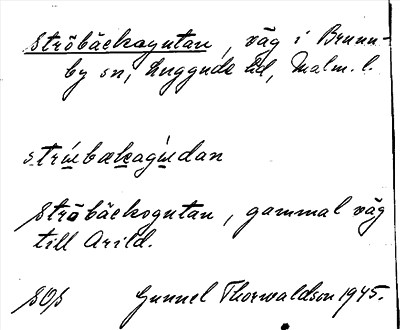 Ströbäckagutan, väg i Brunn-
by sn, Luggude hd, Malm. l.
strıubækagıudan
Ströbäckogutan, gammal väg
till Arild.
SOS Gunnel Thorwaldson 1945.